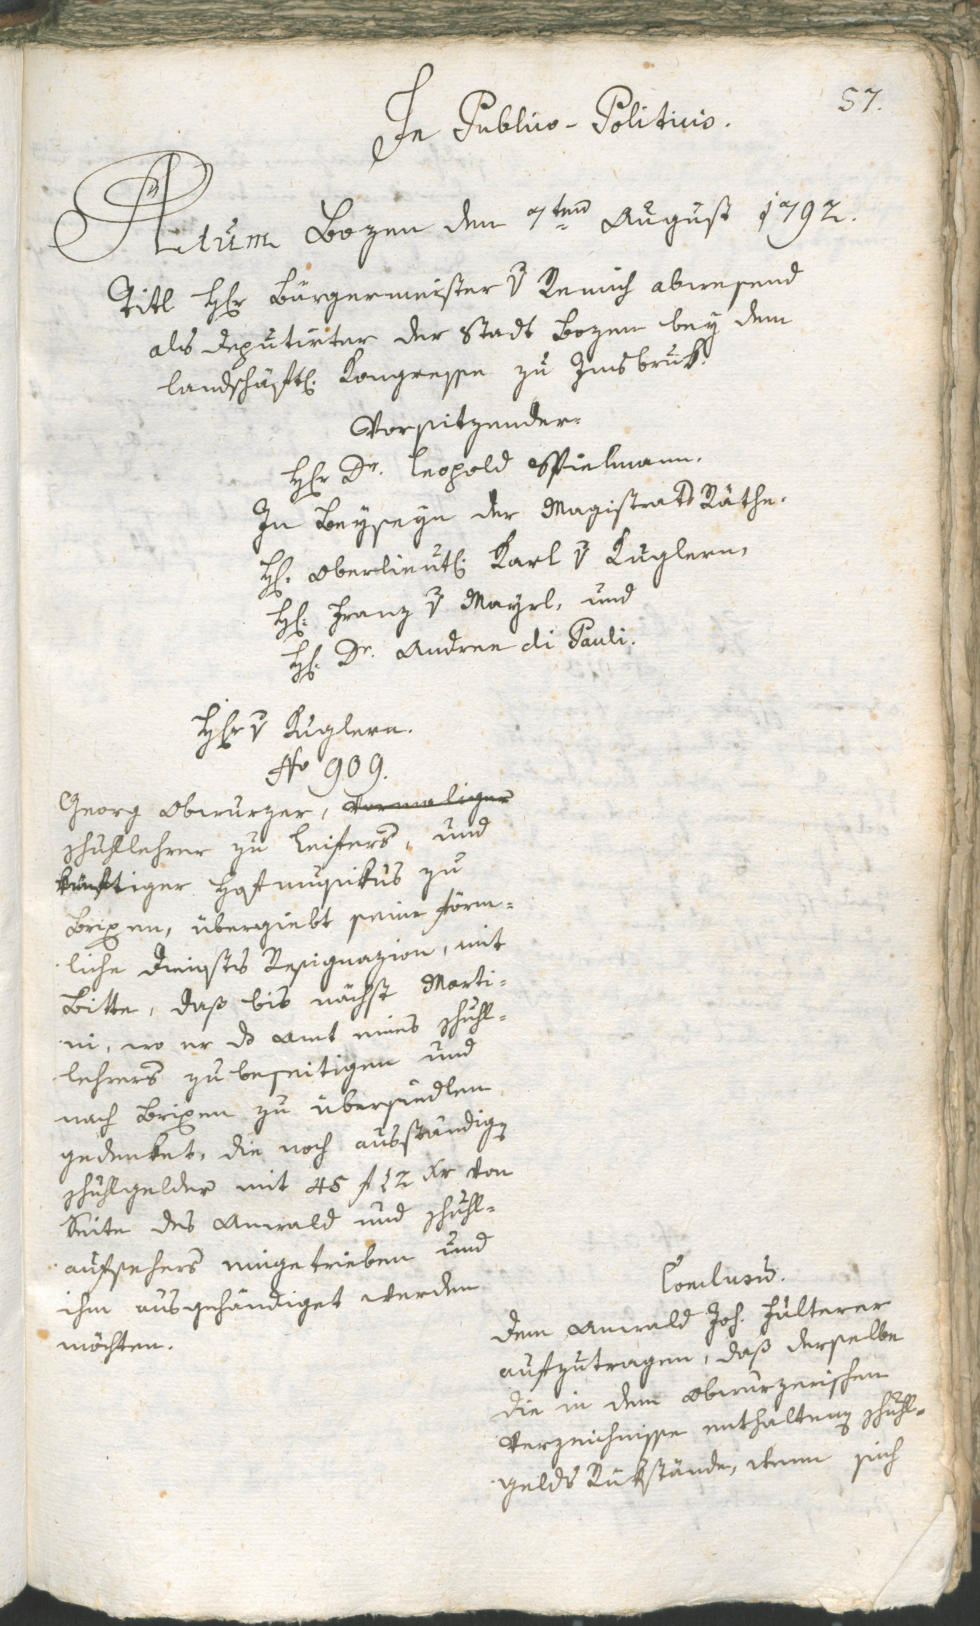 57.
In Publico-Politicis.
Actum Bozen den 7ten August 1792.
Titl Hr Bürgermeister v Remich abwesend
als Deputirter der Stadt Bozen bey dem
landschäftl. Kongresse zu Insbruk.
Vorsitzender.
Hr Dr. Leopold Spielmann.
In Beyseyn der Magistrats Räthe.
H. Oberlieut. Karl v Kuglern,
H. Franz v Mayrl, und
H. Dr. Andree di Pauli.
Hr v Kuglern.
No 909.
Georg Obwurzer, vormaliger
Schullehrer zu Leifers, und
künftiger Hofmusikus zu
Brixen, übergiebt seine förm=
liche Dienstes Resignazion, mit
Bitte, daß bis nächst Marti=
ni, wo er ds Amt eines Schuhl=
lehrers zu beseitigen und
nach Brixen zu übersiedlen
gedenket, die noch ausständign
Schuhlgelder mit 45 f 12 xr von
Seite des Anwald und Schuhl=
aufsehers eingetrieben und
ihm ausgehändiget werden
möchten.
Conclusum.
Dem Anwald Joh. Fulterer
aufzutragen, daß derselbe
die in dem Obwurzerischen
Verzeichnisse enthaltenn Schuhl=
gelds Rükstände, wenn sich